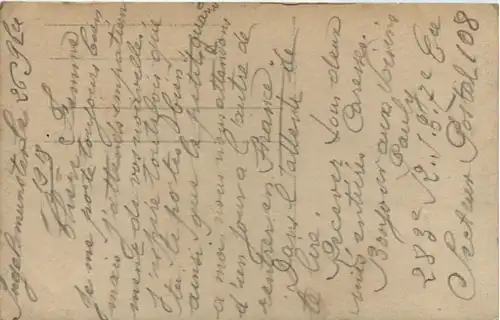 Ingelmunster le 26
1918
Chere Femme
Je me porte toujours bien
mais j'attends impatiem
mente de vos nouvelles
J'espère toutefois que
tu te portes bien
ainsi que la petite quand
a moi nous nous attendons
d'un jour a l'autre de
rentrer en France
Dans l'attente de
te lire.
Recevez tous deux
mes entières Caresses.
Bonjour aux voisins
Pauly
283e R. I. 17e Cie
Secteur Postal 108